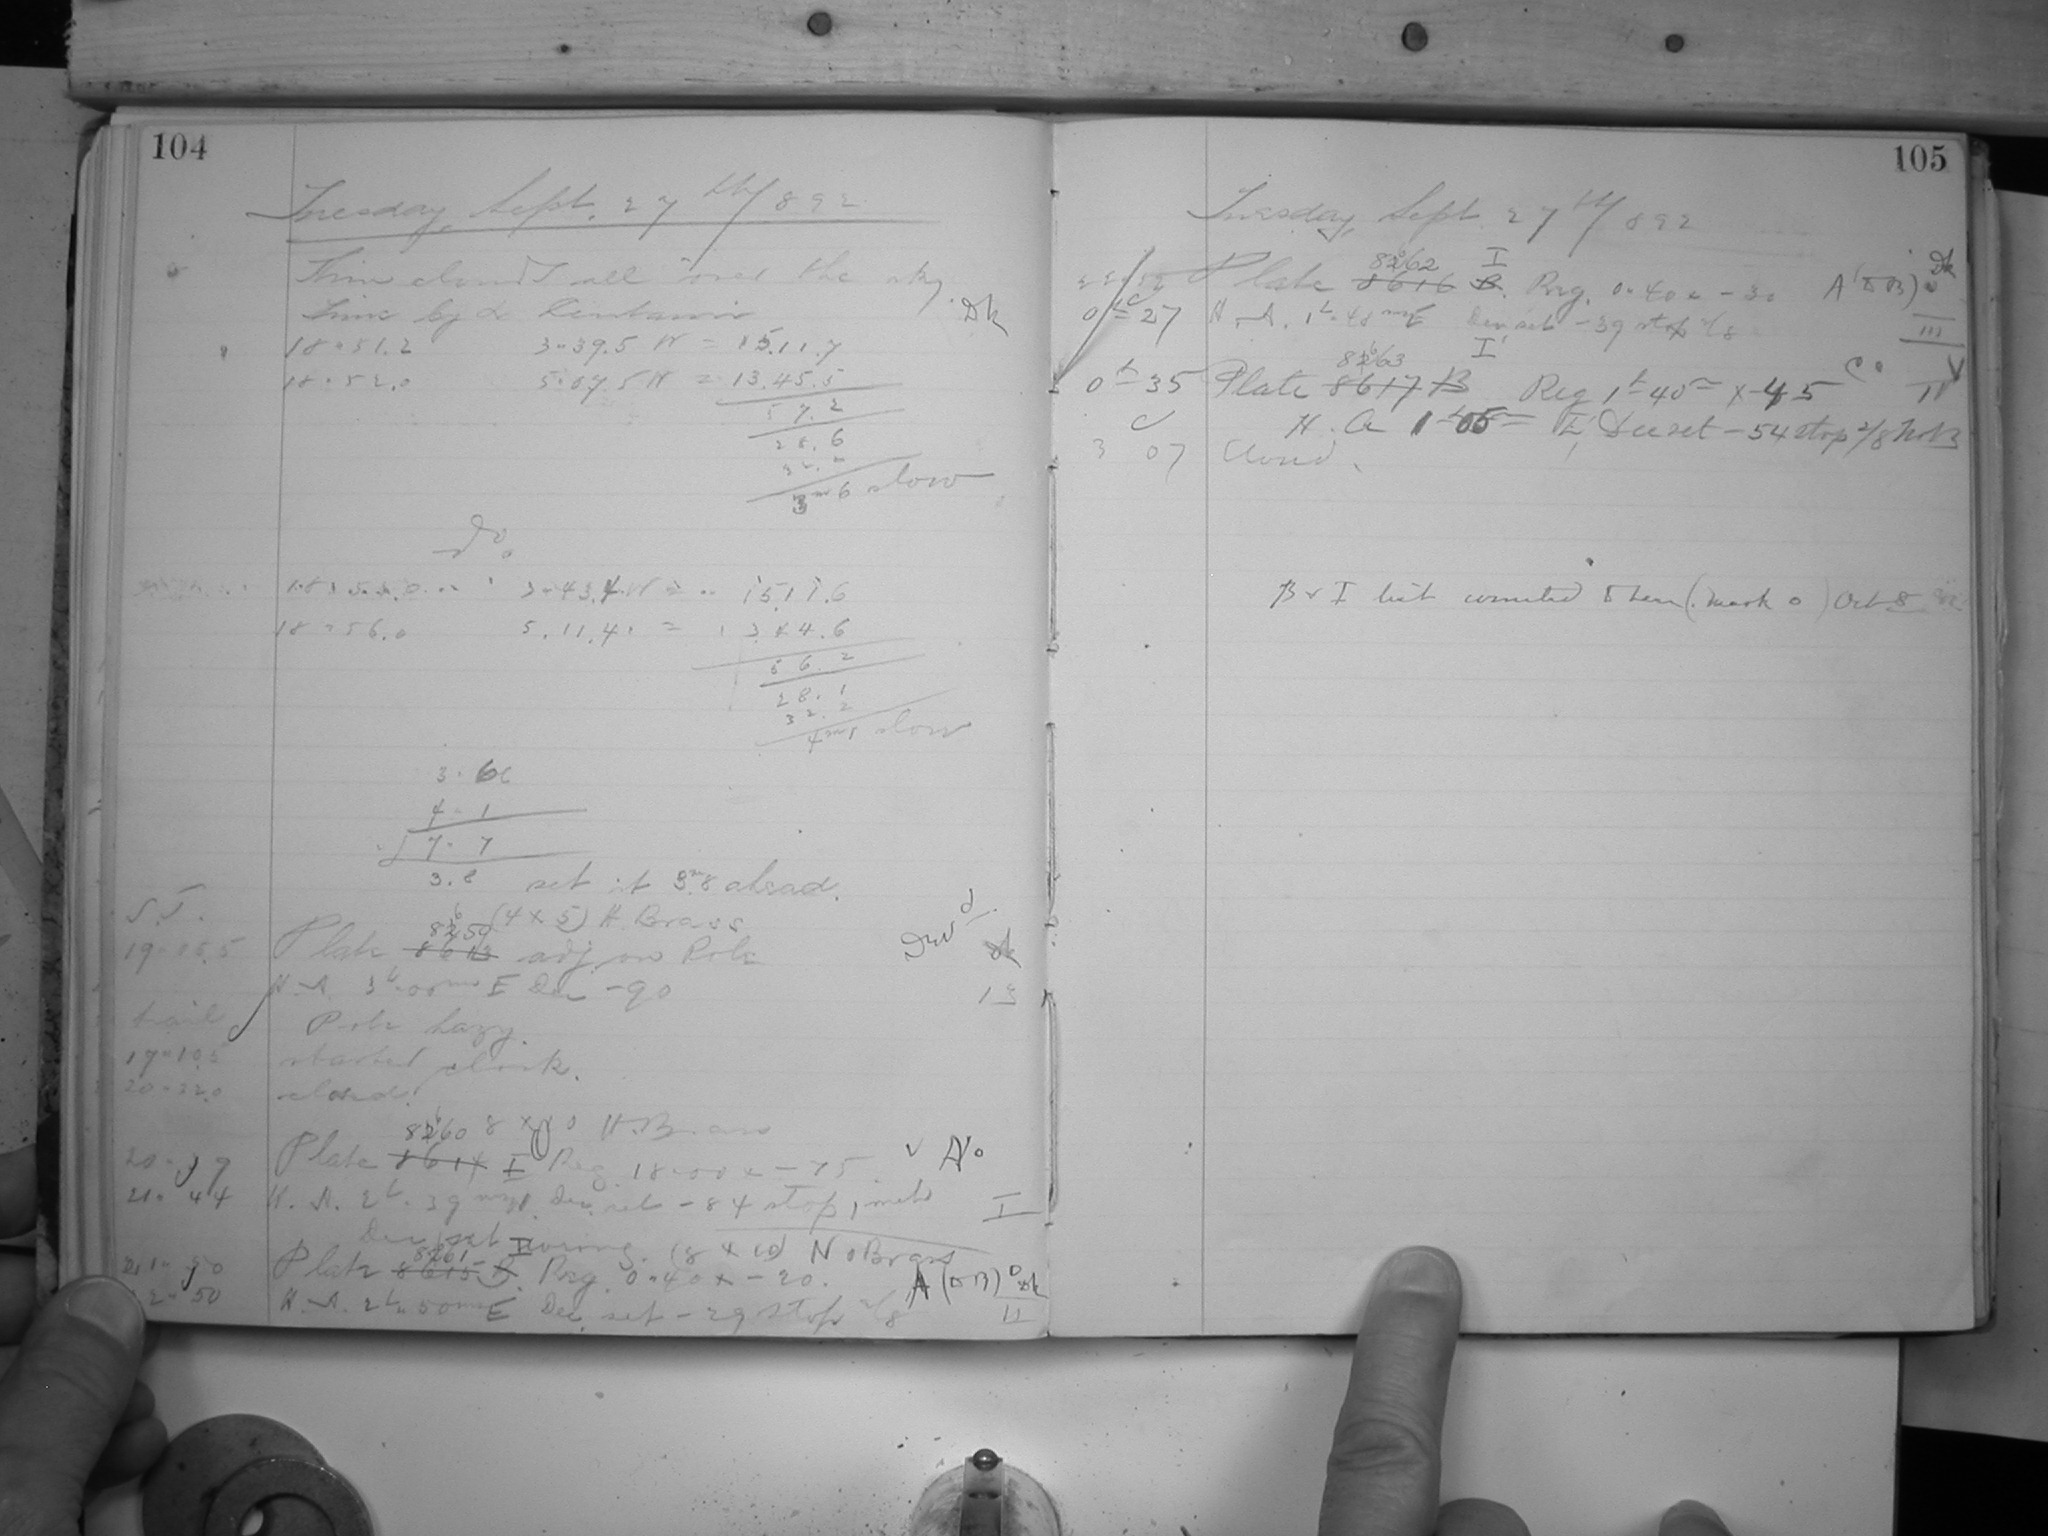 104
Tuesday, Sept. 27th 1892
Thin clouds all over the sky.
Time by α Centauri Dk
18=51.2 3=39.5 W = 15.11.7
18=52.0 5=07.5 W = 13.45.5
57.2
28.6
32.2
3m6 slow
Do.
3=43.4 W = 15.11.6
18=56.0 5.11.4 = 13 44.6
56.2
28.1
32.2
4m1 slow
3.6
4.1
7.7
3.8 set it 3m8 ahead.
S.T.
(4 x 5) H. Brass
19=05.5 Plate 8613 adj. on Pole Dk
H.A. 3h=00m E Dec -90 13
trail Pole hazy.
19=10.5 started clock.
20=32.0 closed.
8260 8 x 10 H. Brass
20=39 Plate 8614 I Reg. 18=00 x -75. A°
21=44 H.A. 2h=39m Dec. set -84 stop, I
Dec. set wrong. (8 x 10) No Brass
8261 I
21=50 Plate 8615 B. Reg. 0=40 x -20. A
22=50 H.A. 2h=50m E Dec. set -29 stop 2/8 II
105
Tuesday, Sept. 27th 1892
8262 I
Plate 8616 B. Reg. 0=40 x -30 Dk
0h=27 H.A. 1h=48m E Dec set -39 stop 2/8 III
8263 I
0h=35 Plate 8617 B Reg 1h=40m x -45
H.A. 1h=05m E, Dec set -54 stop 2/8
3 07 Closed.
B & I list corrected (mark o) Oct 8